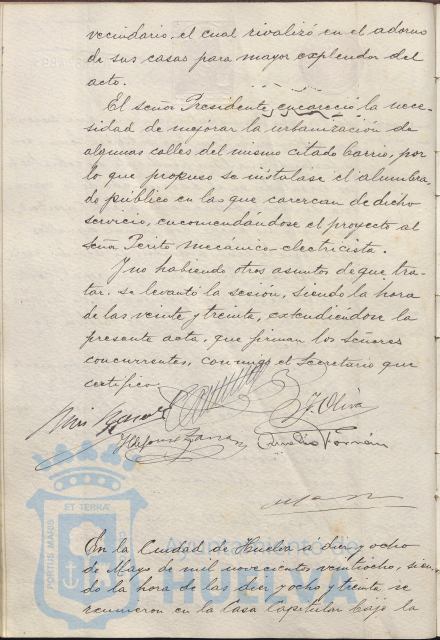 vecindario, el cual rivalizó en el adorno
de sus casas para mayor explendor del
acto.
El señor Presidente, encareció la nece-
sidad de mejorar la urbanización de
algunas calles del mismo citado barrio, por
lo que propuso se instalase el alumbra-
do público en las que carezcan de dicho
servicio, encomendándose el proyecto al
señor Perito mecánico-electricista.
Y no habiendo otros asuntos de que tra-
tar, se levantó la sesión, siendo la hora
de las veinte y treinta, extendiéndose la
presente acta, que firman los Señores
concurrentes, conmigo el Secretario que
certifico.
J. Oliva
ET TERRÆ
PORTUS MARIS
Ayuntamiento de
HUELVA
En la Ciudad de Huelva a diez y ocho
de Mayo de mil novecientos veintiocho, sien-
do la hora de las diez y ocho y treinta, se
reunieron en la Casa Capitular bajo la